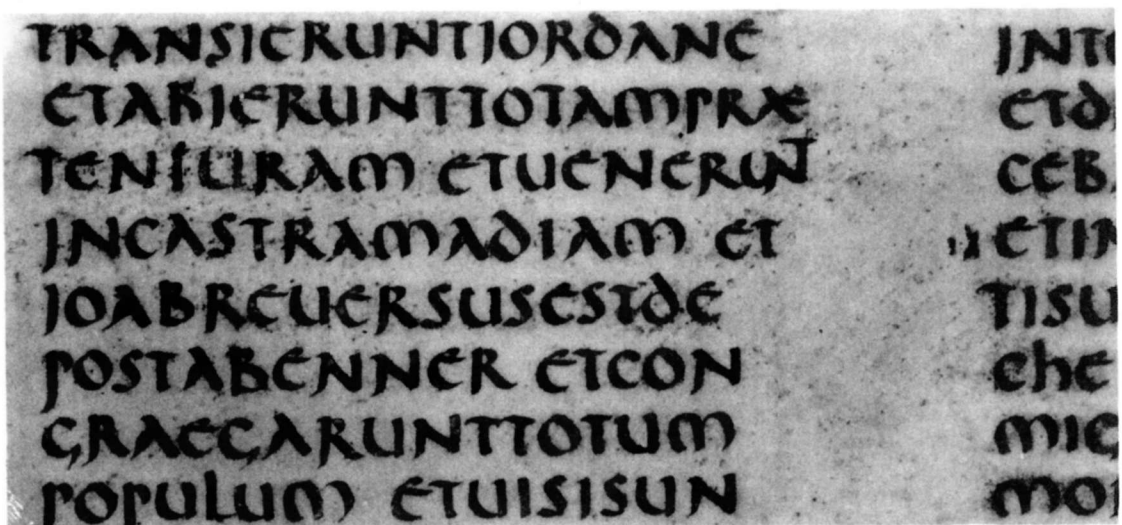 TRANSIERUNTIORDANE
ETABIERUNTTOTAMPRÆ
TENSURAM ETUENERUNT
INCASTRAMADIAM ET
IOABREUERSUSESTDE
POSTABENNER ETCON
GRAEGARUNTTOTUM
POPULUM ETUISISUN
INT
ETD
CEB
ETI
TISU
EHE
MI
MO